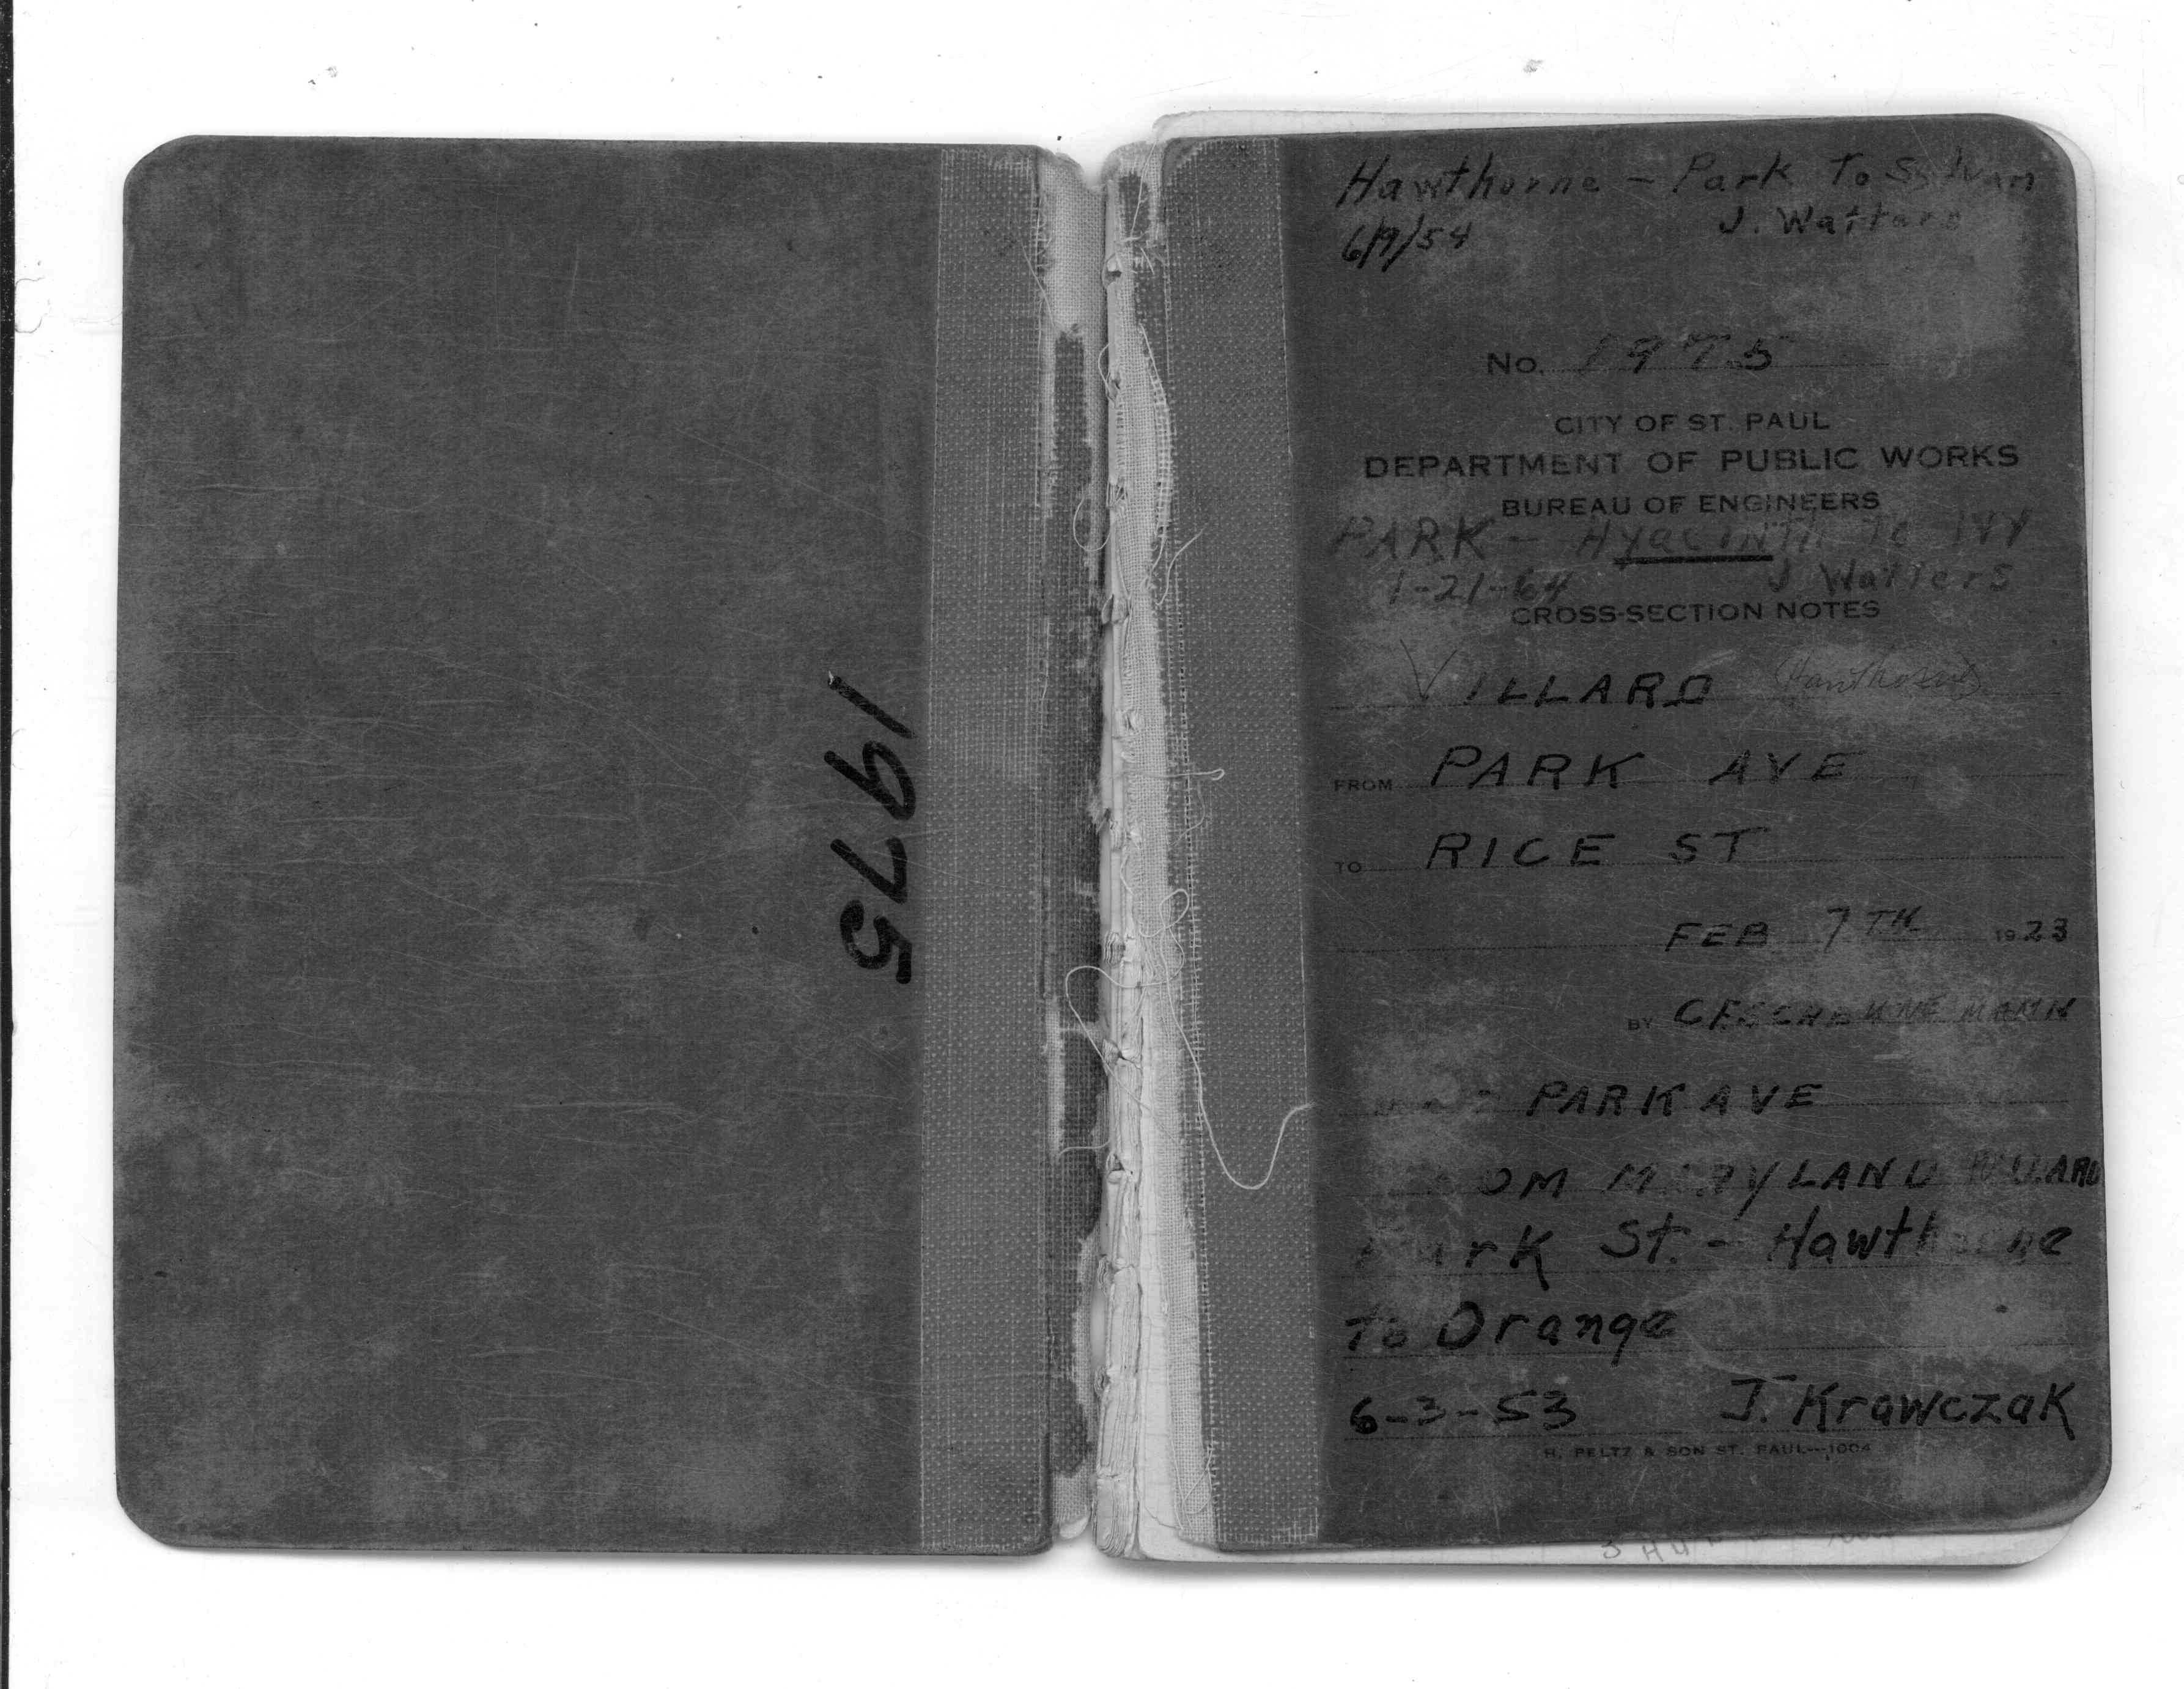 1975
Hawthorne - Park To Sylvan
6/9/54 J. Watters
No. 1975
CITY OF ST. PAUL
DEPARTMENT OF PUBLIC WORKS
BUREAU OF ENGINEERS
PARK - Hyacinth To IVY
1-21-64 J Watters
CROSS-SECTION NOTES
VILLARD Hawthorne
FROM PARK AVE
TO RICE ST
FEB 7TH 1923
BY
PARK AVE
MARYLAND
Park St. - Hawthorne
To Orange
6-3-53 J. Krawczak
H. PELTZ & SON ST. PAUL--1004